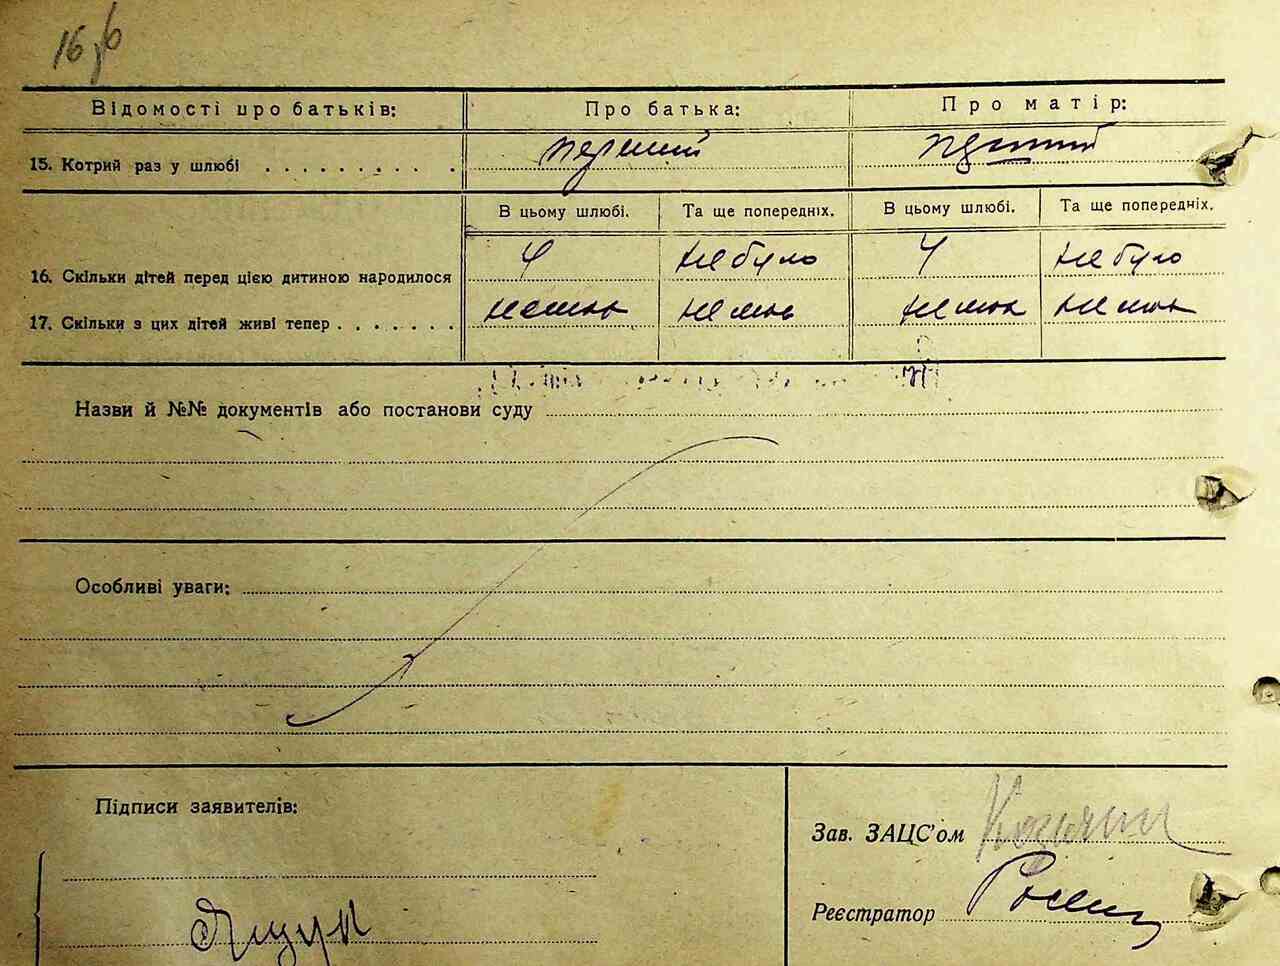 16 зб
Відомості про батьків: Про батька: Про матір:
15. Котрий раз у шлюбі . . . . . . . . . . перший перший
В цьому шлюбі. Та ще попередніх. В цьому шлюбі. Та ще попередніх.
16. Скільки дітей перед цією дитиною народилося 4 не було 4 не було
17. Скільки з цих дітей живі тепер . . . . . . . нема нема нема нема
Назви й №№ документів або постанови суду
Особливі уваги:
Підписи заявителів:
Зав. ЗАЦС'ом
Реєстратор
Ящук